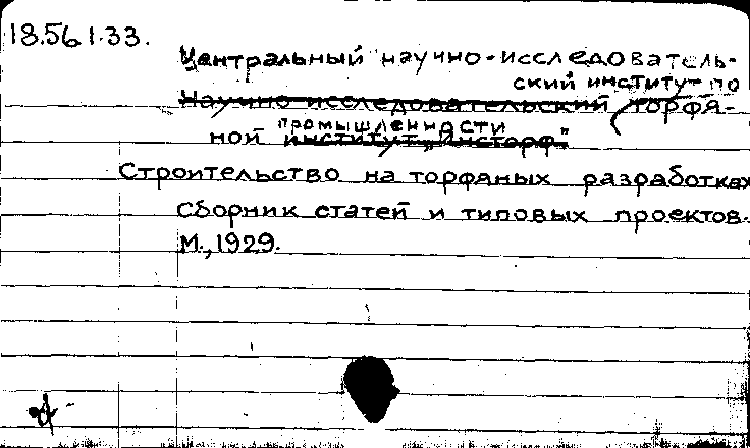 18.56.1.33.
Центральный научно-исследователь-
ский институт по
Научно-исследовательский торфя-
промышленности
ной институт „Инсторф"
Строительство на торфяных разработках
Сборник статей и типовых проектов.
М., 1929.